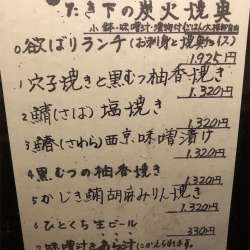 たき下の炭火焼奥
小鉢・味噌汁・漬物付
欲ばりランチ(お刺身と焼魚
1.925円
1穴子焼きと黒むつ柚香焼き
1.320円
2鯖(さば)塩焼
1.320円
3鰆(さわら)西京味噌漬け
1.320円
4黒むつの柚香焼き
1.320円
5かじき鮪胡麻みりん焼き
1.320円
ひとくち生ビール
330円
味噌汁をあら汁にかえられます